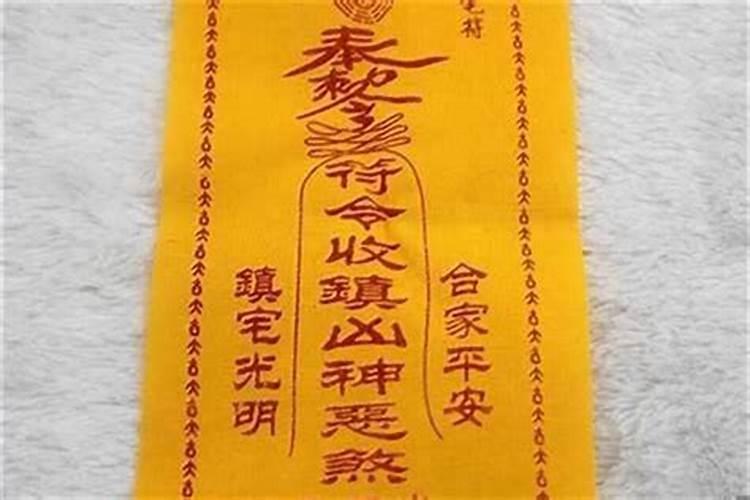 符
合家平安
奉勅
符令收鎮凶神惡煞
鎮宅光明